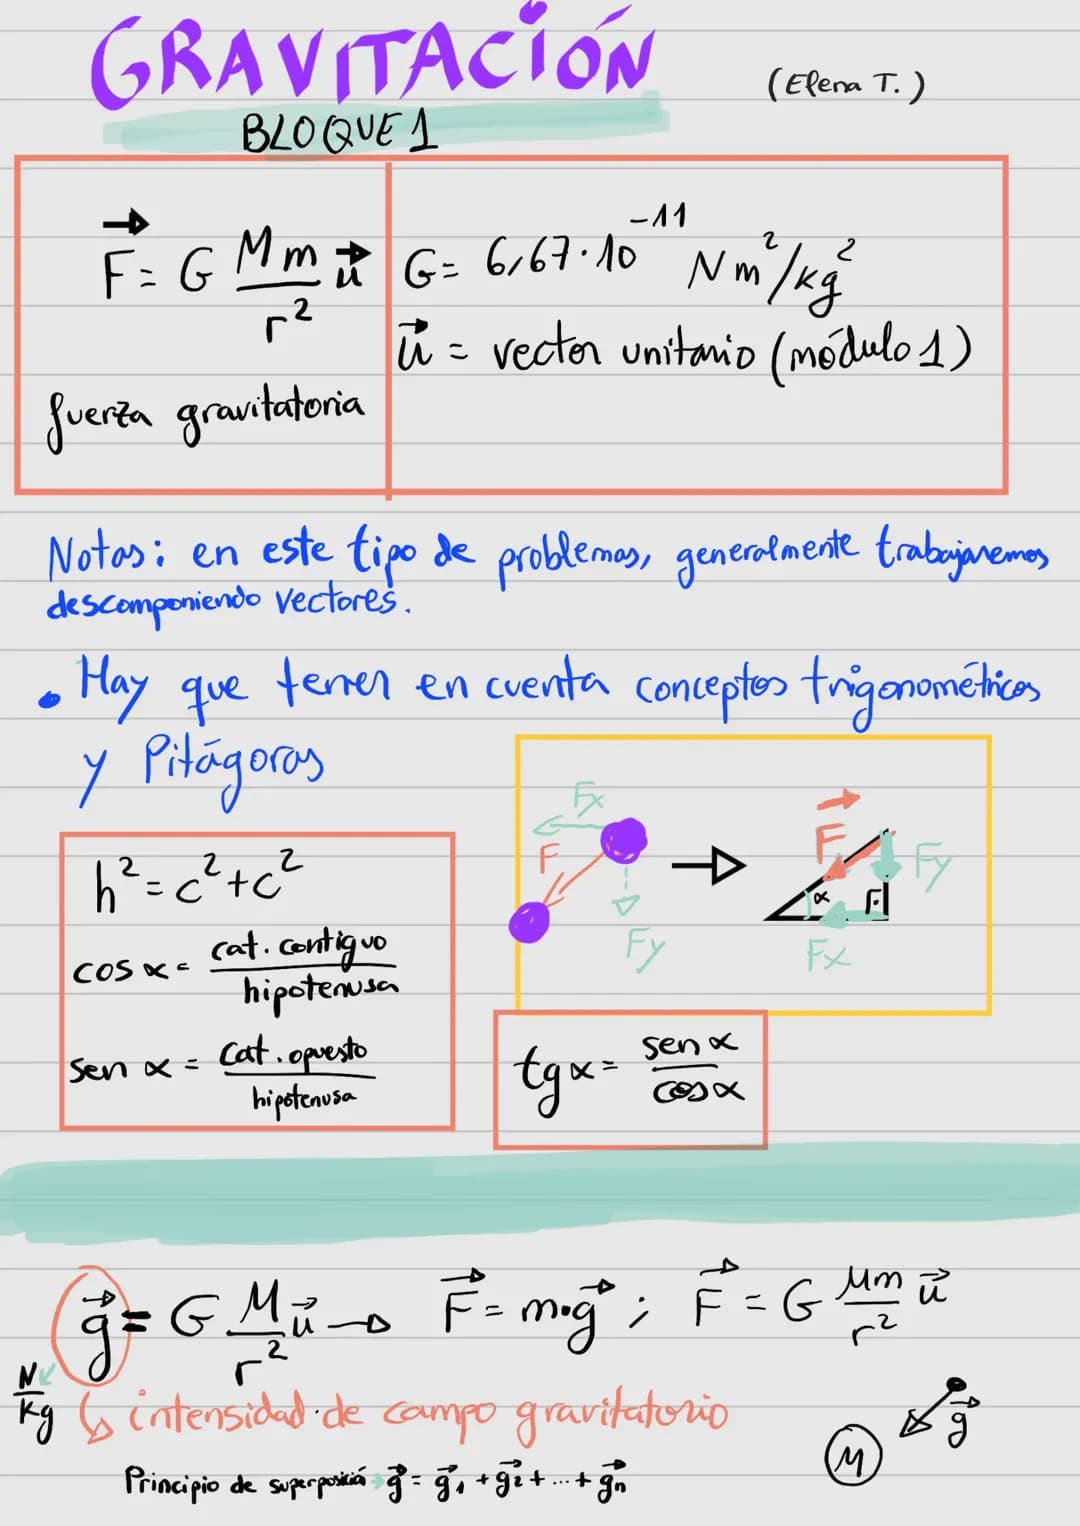 GRAVITACIÓN
(Elena T.)
BLOQUE 1
F⃗ = G Mm/r² u⃗
fuerza gravitatoria
G = 6,67·10⁻¹¹ Nm²/kg²
u⃗ = vector unitario (módulo 1)
Notas: en este tipo de problemas, generalmente trabajaremos
descomponiendo vectores.
• Hay que tener en cuenta conceptos trigonométricos
y Pitágoras
h² = c² + c²
cos α = cat. contiguo/hipotenusa
sen α = cat. opuesto/hipotenusa
Fx
F
Fy
F⃗
Fy
α
Fx
tg α = sen α/cos α
g⃗ = G M/r² u⃗ → F⃗ = m·g⃗ ; F⃗ = G Mm/r² u⃗
N/kg
↳ intensidad de campo gravitatorio
M
g⃗
Principio de superposició → g⃗ = g⃗₁ + g⃗₂ + ... + g⃗n